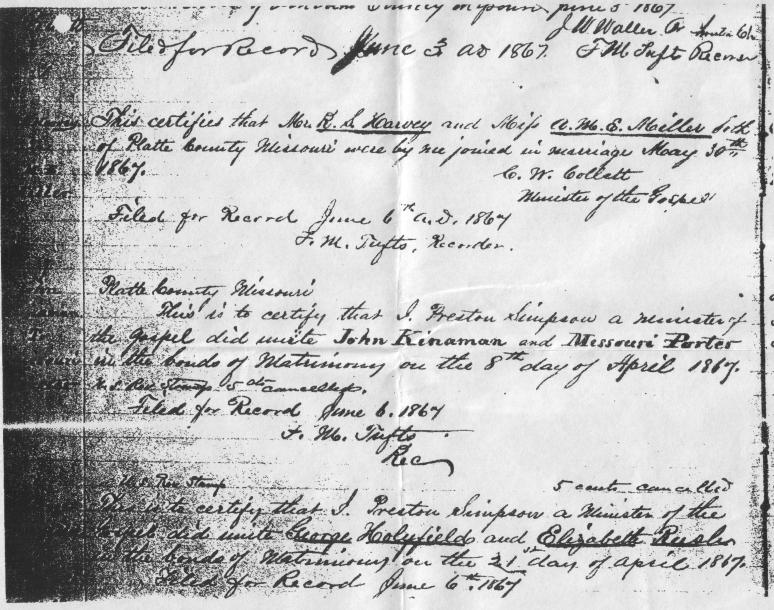 County Missouri, June 3 1867
J W Waller Co Clk
Filed for Record June 3 AD 1867. F M Tufts Recorder
This certifies that Mr. R. S. Harvey and Miss A. M. E. Miller both
of Platte County Missouri were by me joined in marriage May 30th
1867.
C. W. Collett
Minister of the Gospel
Filed for Record June 6th A.D. 1867
F. M. Tufts, Recorder.
Platte County Missouri
This is to certify that I. Preston Simpson a minister of
the gospel did unite John Kinaman and Missouri Porter
in the bonds of Matrimony on the 8th day of April 1867.
U. S. Rev Stamp 5 cts cancelled.
Filed for Record June 6. 1867
F. M. Tufts
Rec
U.S. Rev Stamp 5 cents cancelled
This is to certify that I. Preston Simpson a Minister of the
Gospel did unite George Holyfield and Elizabeth
in the bonds of Matrimony on the 21st day of April 1867.
Filed for Record June 6th 1867